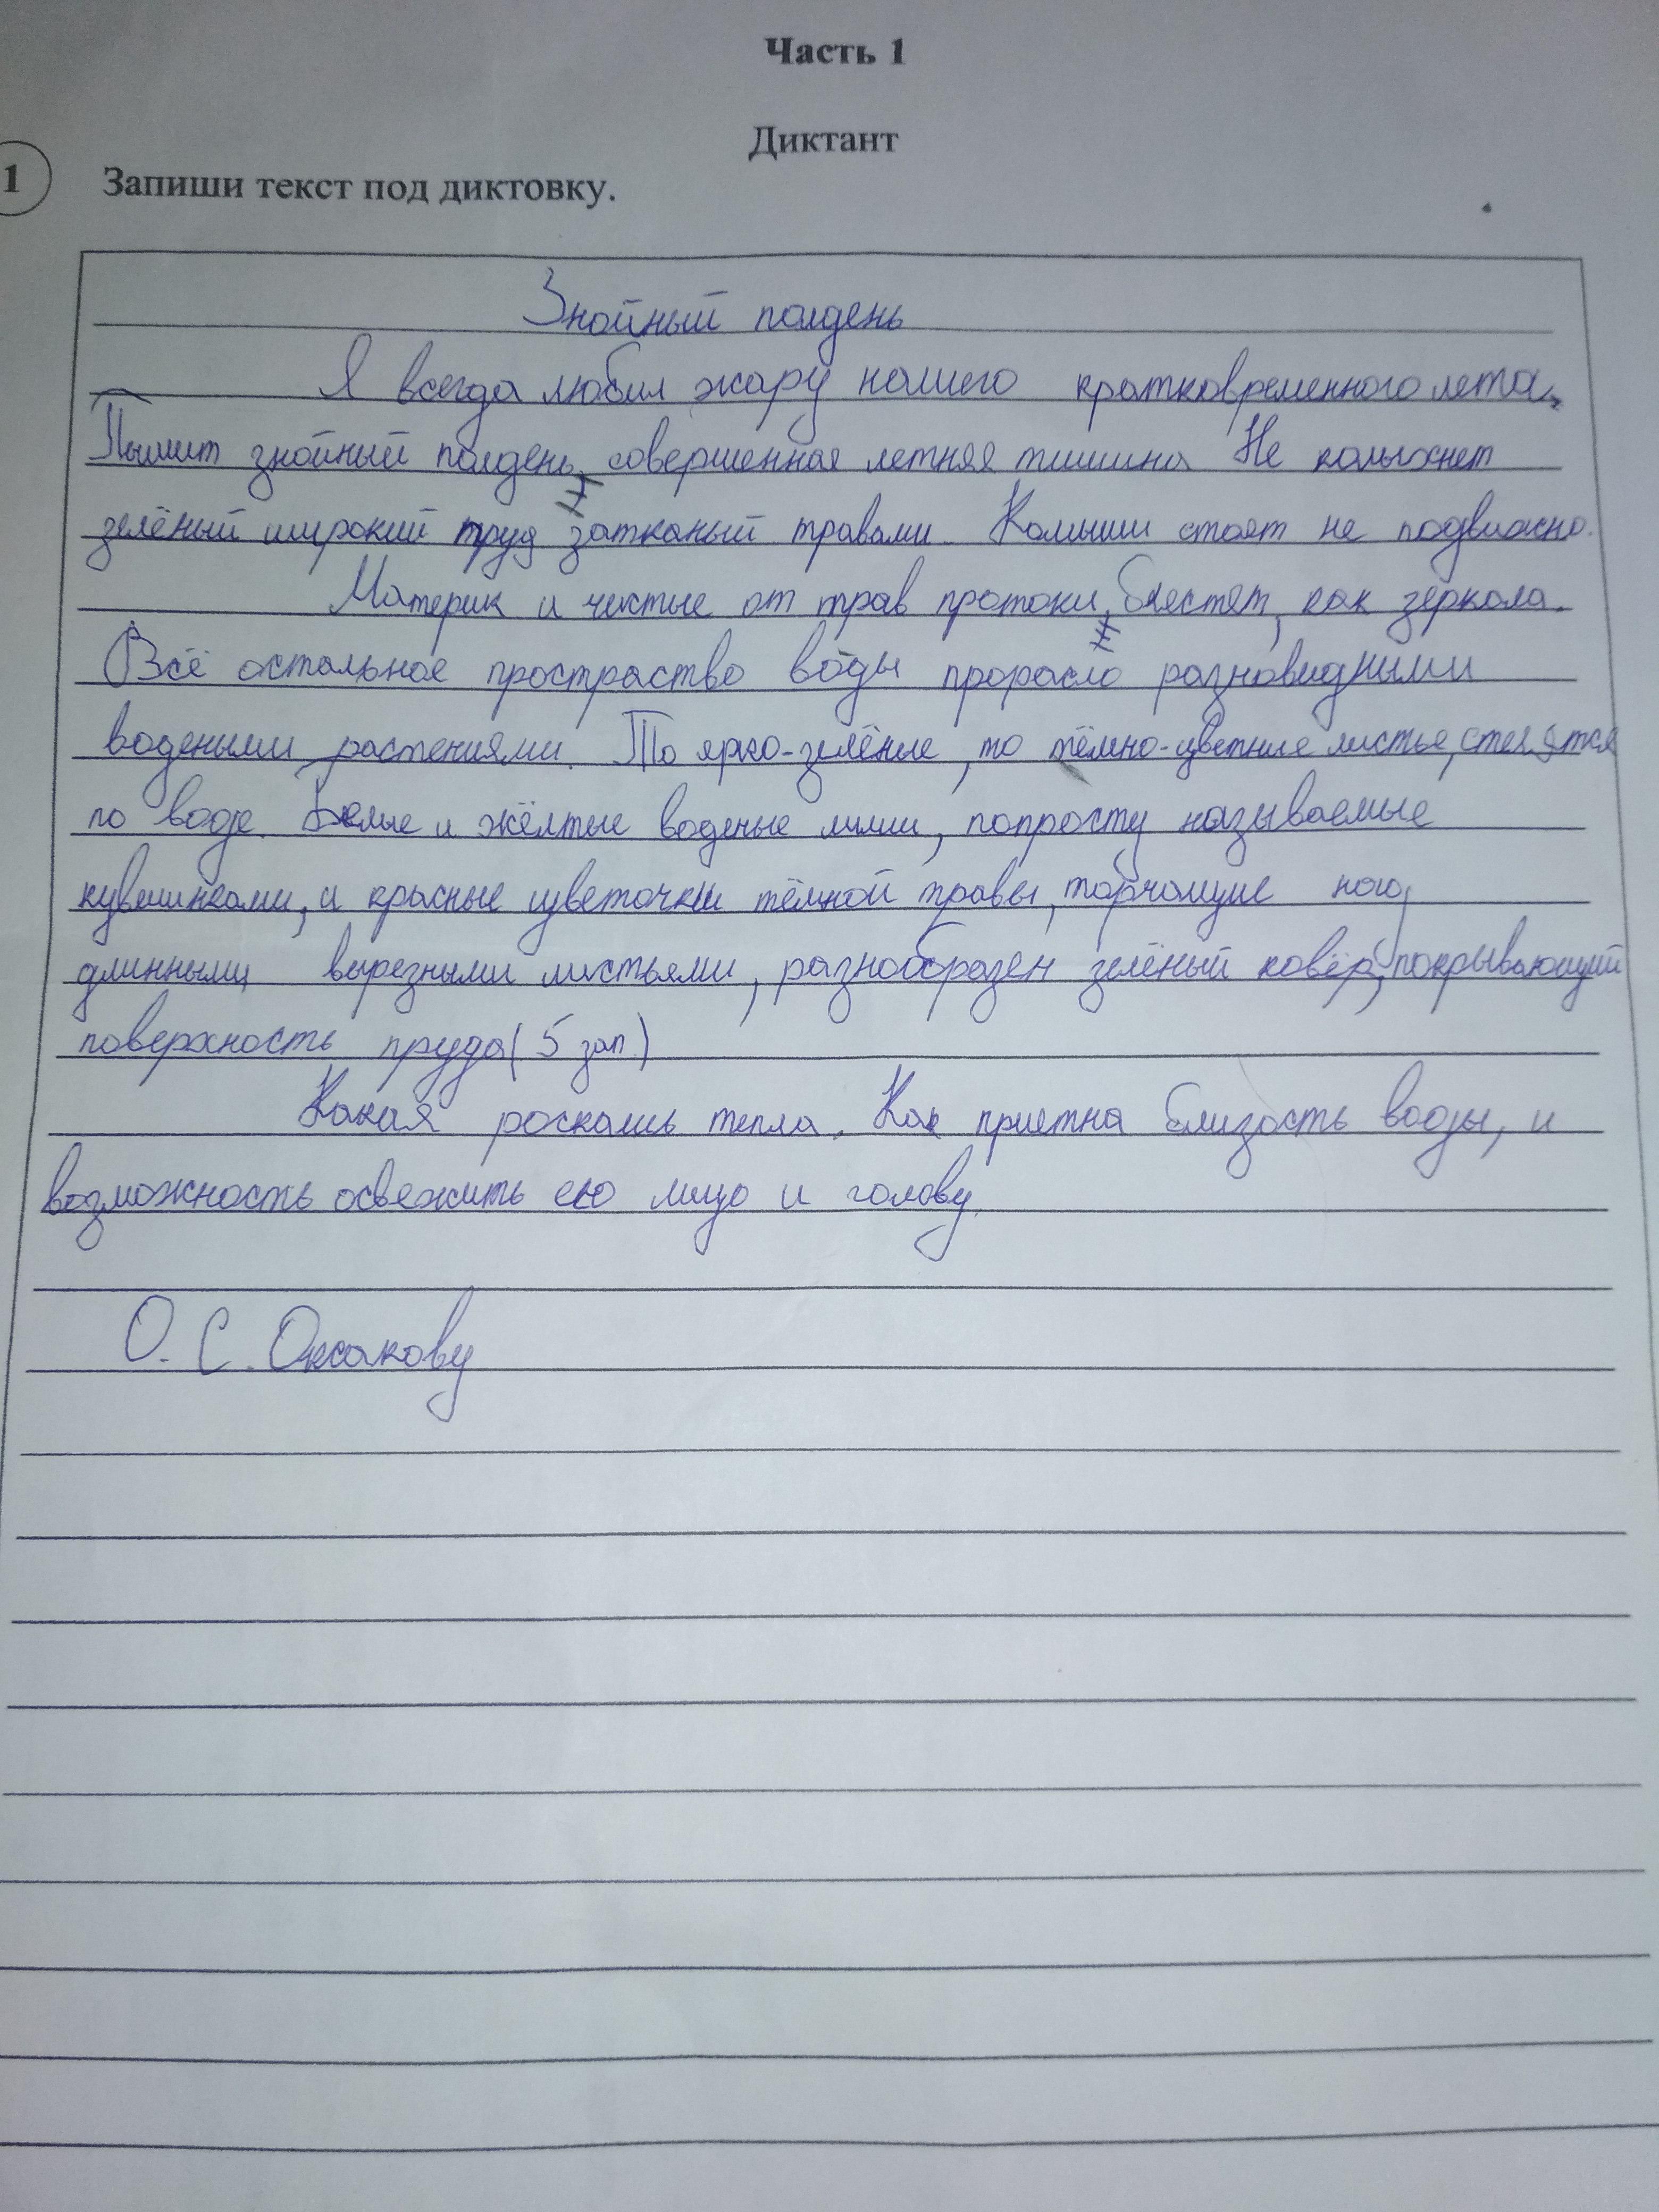 Часть 1
Диктант
1 Запиши текст под диктовку.
Знойный полдень
Я всегда любил жару нашего кратковременного лета.
Пылит знойный полдень, совершенная летняя тишина Не колыхнет
зелёный широкий пруд затканый травами. Камыши стоят не подвижно.
Материк и чистые от трав протоки, блестят, как зеркала.
Всё остальное простраство воды проросло разновидными
водеными растениями. То ярко-зелёные, то тёмно-цветные листье, стелятся
по воде. Белые и жёлтые воденые лилии, попросту называемые
кувшинками, и красные цветочки тёмной травы, торчащие над
длинными вырезными листьями, разнообразен зелёный ковёр, покрывающий
поверхность пруда (5 зап.)
Какая роскашь тепла. Как приятна близость воды, и
возможность освежить ею лицо и голову.
О. С. Оксакову